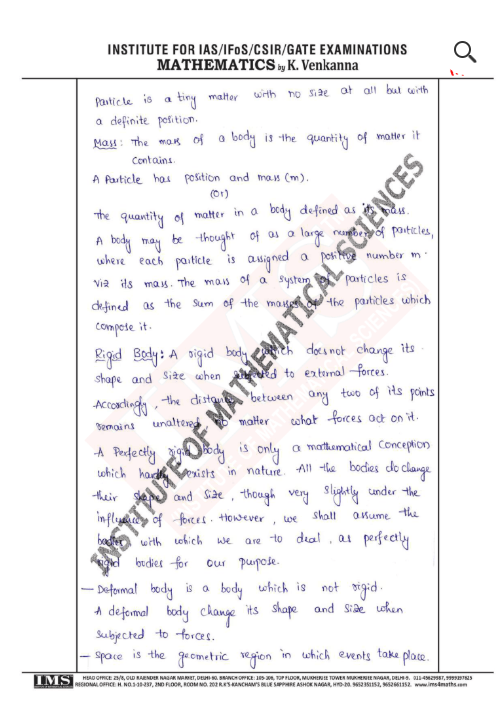 INSTITUTE FOR IAS/IFoS/CSIR/GATE EXAMINATIONS
MATHEMATICS by K. Venkanna
Particle is a tiny matter with no size at all but with
a definite position.
Mass: The mass of a body is the quantity of matter it
contains.
A Particle has position and mass (m).
(Or)
The quantity of matter in a body defined as its mass.
A body may be thought of as a large number of particles,
where each particle is assigned a positive number m.
Viz its mass. The mass of a system of particles is
defined as the sum of the masses of the particles which
compose it.
Rigid Body: A rigid body which doesnot change its
shape and size when subjected to external forces.
Accordingly, the distance between any two of its points
remains unaltered, no matter what forces act on it.
A Perfectly rigid body is only a mathematical Conception
which hardly exists in nature. All the bodies do change
their shape and size, though very slightly under the
influence of forces. However, we shall assume the
bodies, with which we are to deal, as perfectly
rigid bodies for our purpose.
— Deformal body is a body which is not rigid.
A deformal body change its shape and size when
subjected to forces.
— Space is the geometric region in which events take place.
INSTITUTE OF MATHEMATICAL SCIENCES
IMS
HEAD OFFICE: 25/8, OLD RAJENDER NAGAR MARKET, DELHI-60. BRANCH OFFICE: 105-106, TOP FLOOR, MUKHERJEE TOWER MUKHERJEE NAGAR, DELHI-9. 011-45629987, 9999197625
REGIONAL OFFICE: H. NO.1-10-237, 2ND FLOOR, ROOM NO. 202 R.K'S-KANCHAM'S BLUE SAPPHIRE ASHOK NAGAR, HYD-20. 9652351152, 9652661152. www.ims4maths.com